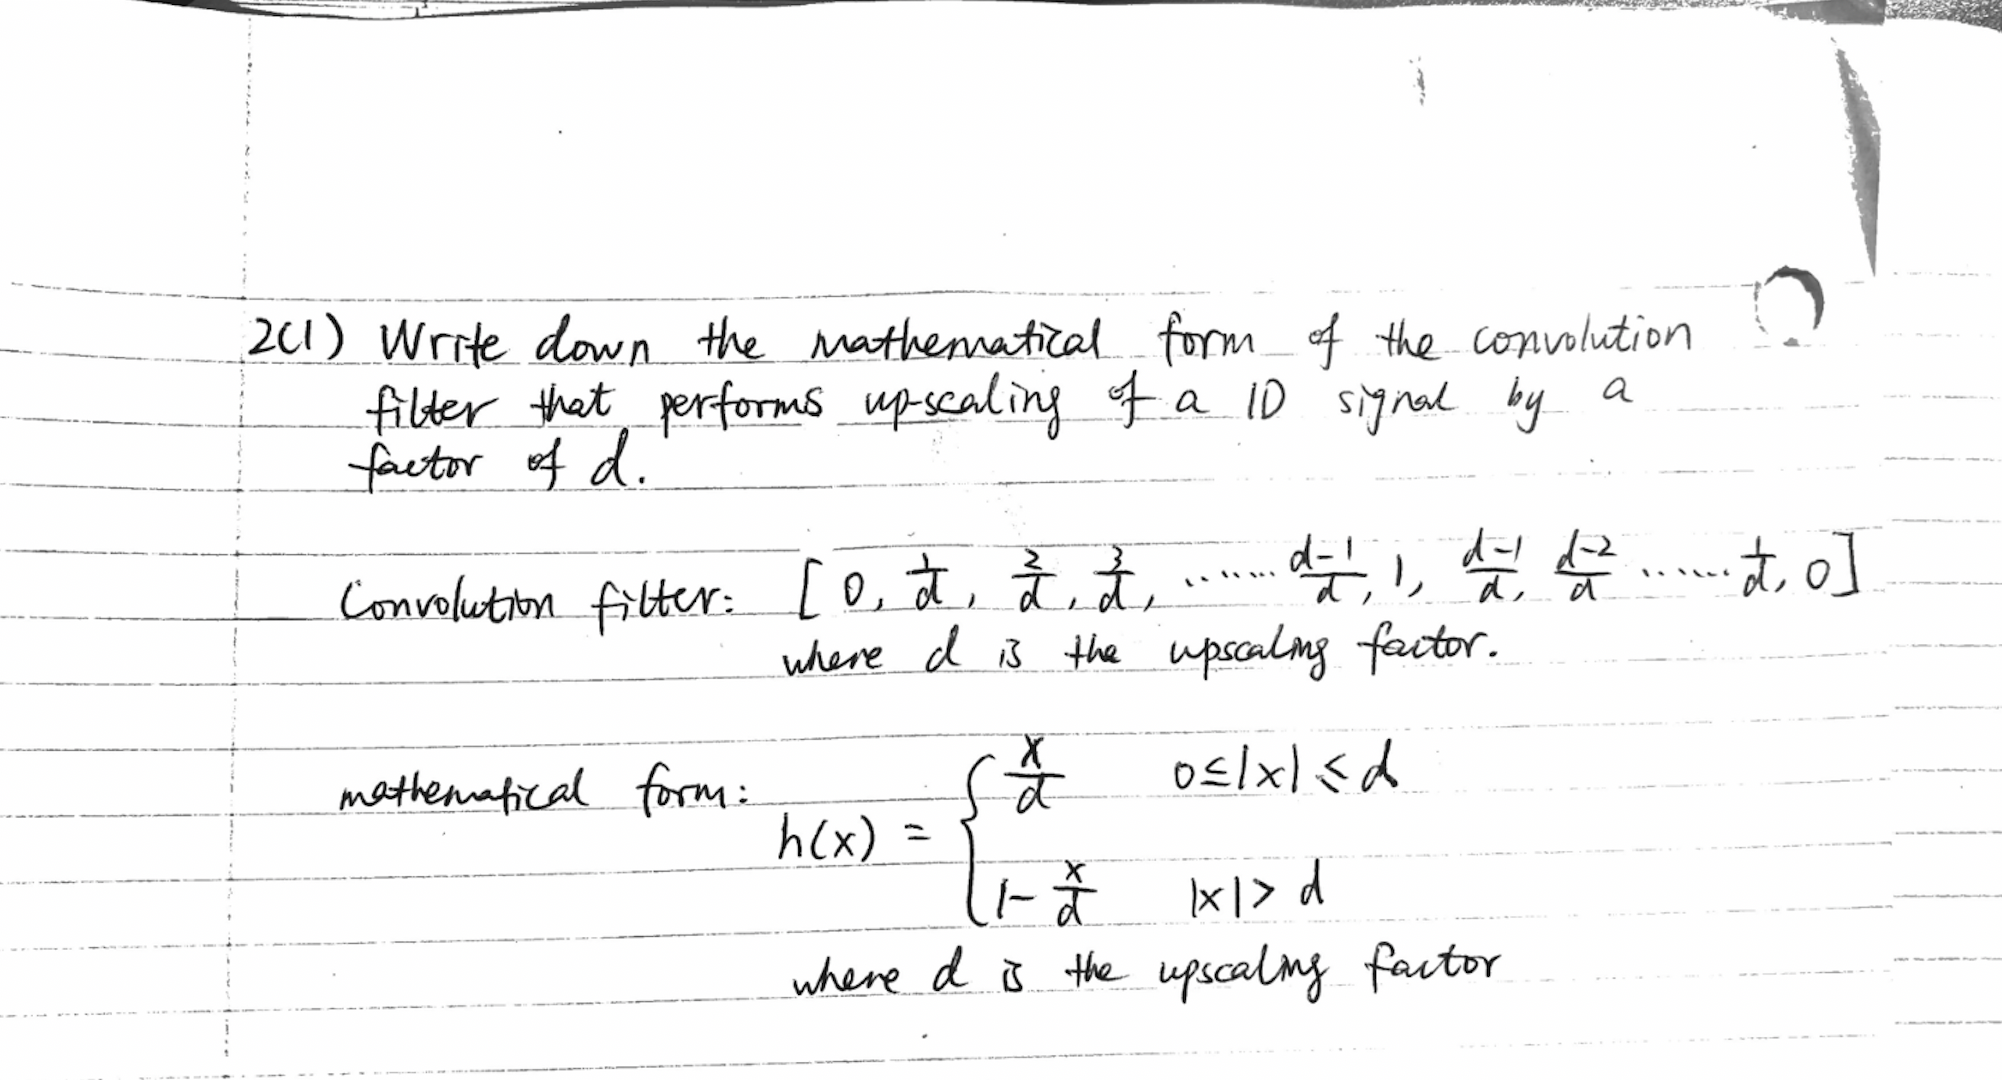 2(1) Write down the mathematical form of the convolution
filter that performs up-scaling of a 1D signal by a
factor of d.
Convolution filter: [0, 1/d, 2/d, 3/d, ....... d-1/d, 1, d-1/d, d-2/d ...... 1/d, 0]
where d is the upscaling factor.
mathematical form:
h(x) = { x/d 0≤|x|≤d
1-x/d |x|>d
where d is the upscaling factor